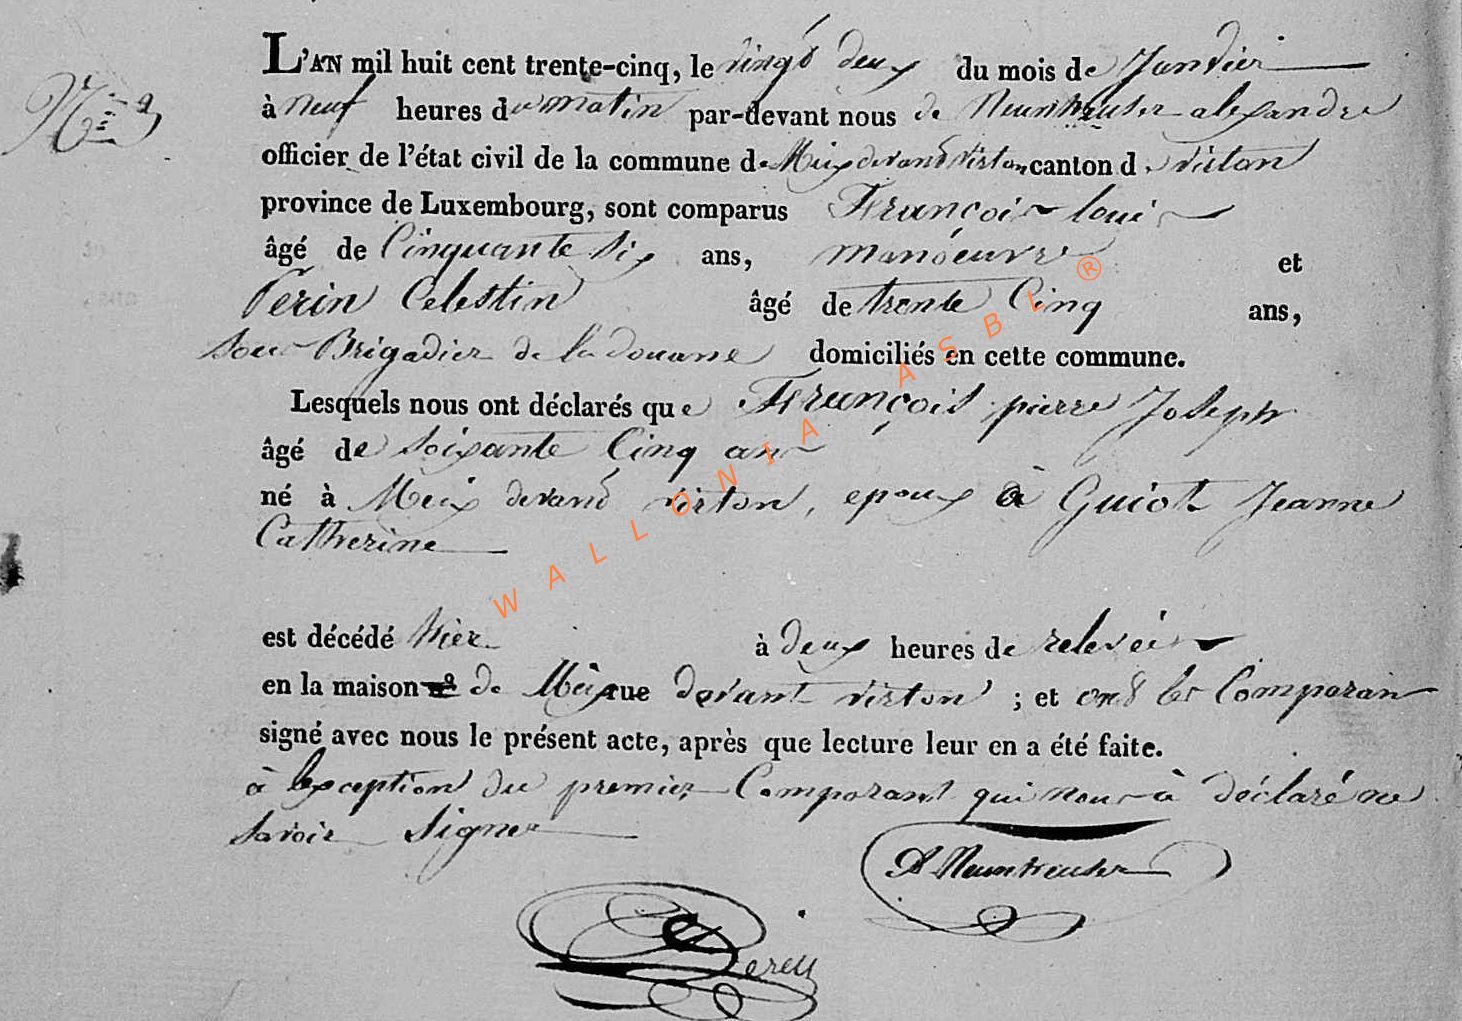 L'AN mil huit cent trente-cinq, le vingt deux du mois de Janvier
à neuf heures du matin par-devant nous de Neunheuser alexandre
officier de l'état civil de la commune de Meix devant virton canton de virton
province de Luxembourg, sont comparus François loui
âgé de Cinquante Six ans, manoeuvre et
Perin Celestin âgé de trente Cinq ans,
sous Brigadier de la douane domiciliés en cette commune.
Lesquels nous ont déclarés que François pierre Joseph
âgé de soixante Cinq ans
né à Meix devant virton, epoux à Guiot Jeanne
Catherine
est décédé hier à deux heures de relevée
en la maison n° de Meix rue devant virton ; et ont les Comparan
signé avec nous le présent acte, après que lecture leur en a été faite.
à lexception du premier Comparant qui nous à déclaré ne
savoir Signer
A Neunheuser
Perin
WALLONIA ASBL ®